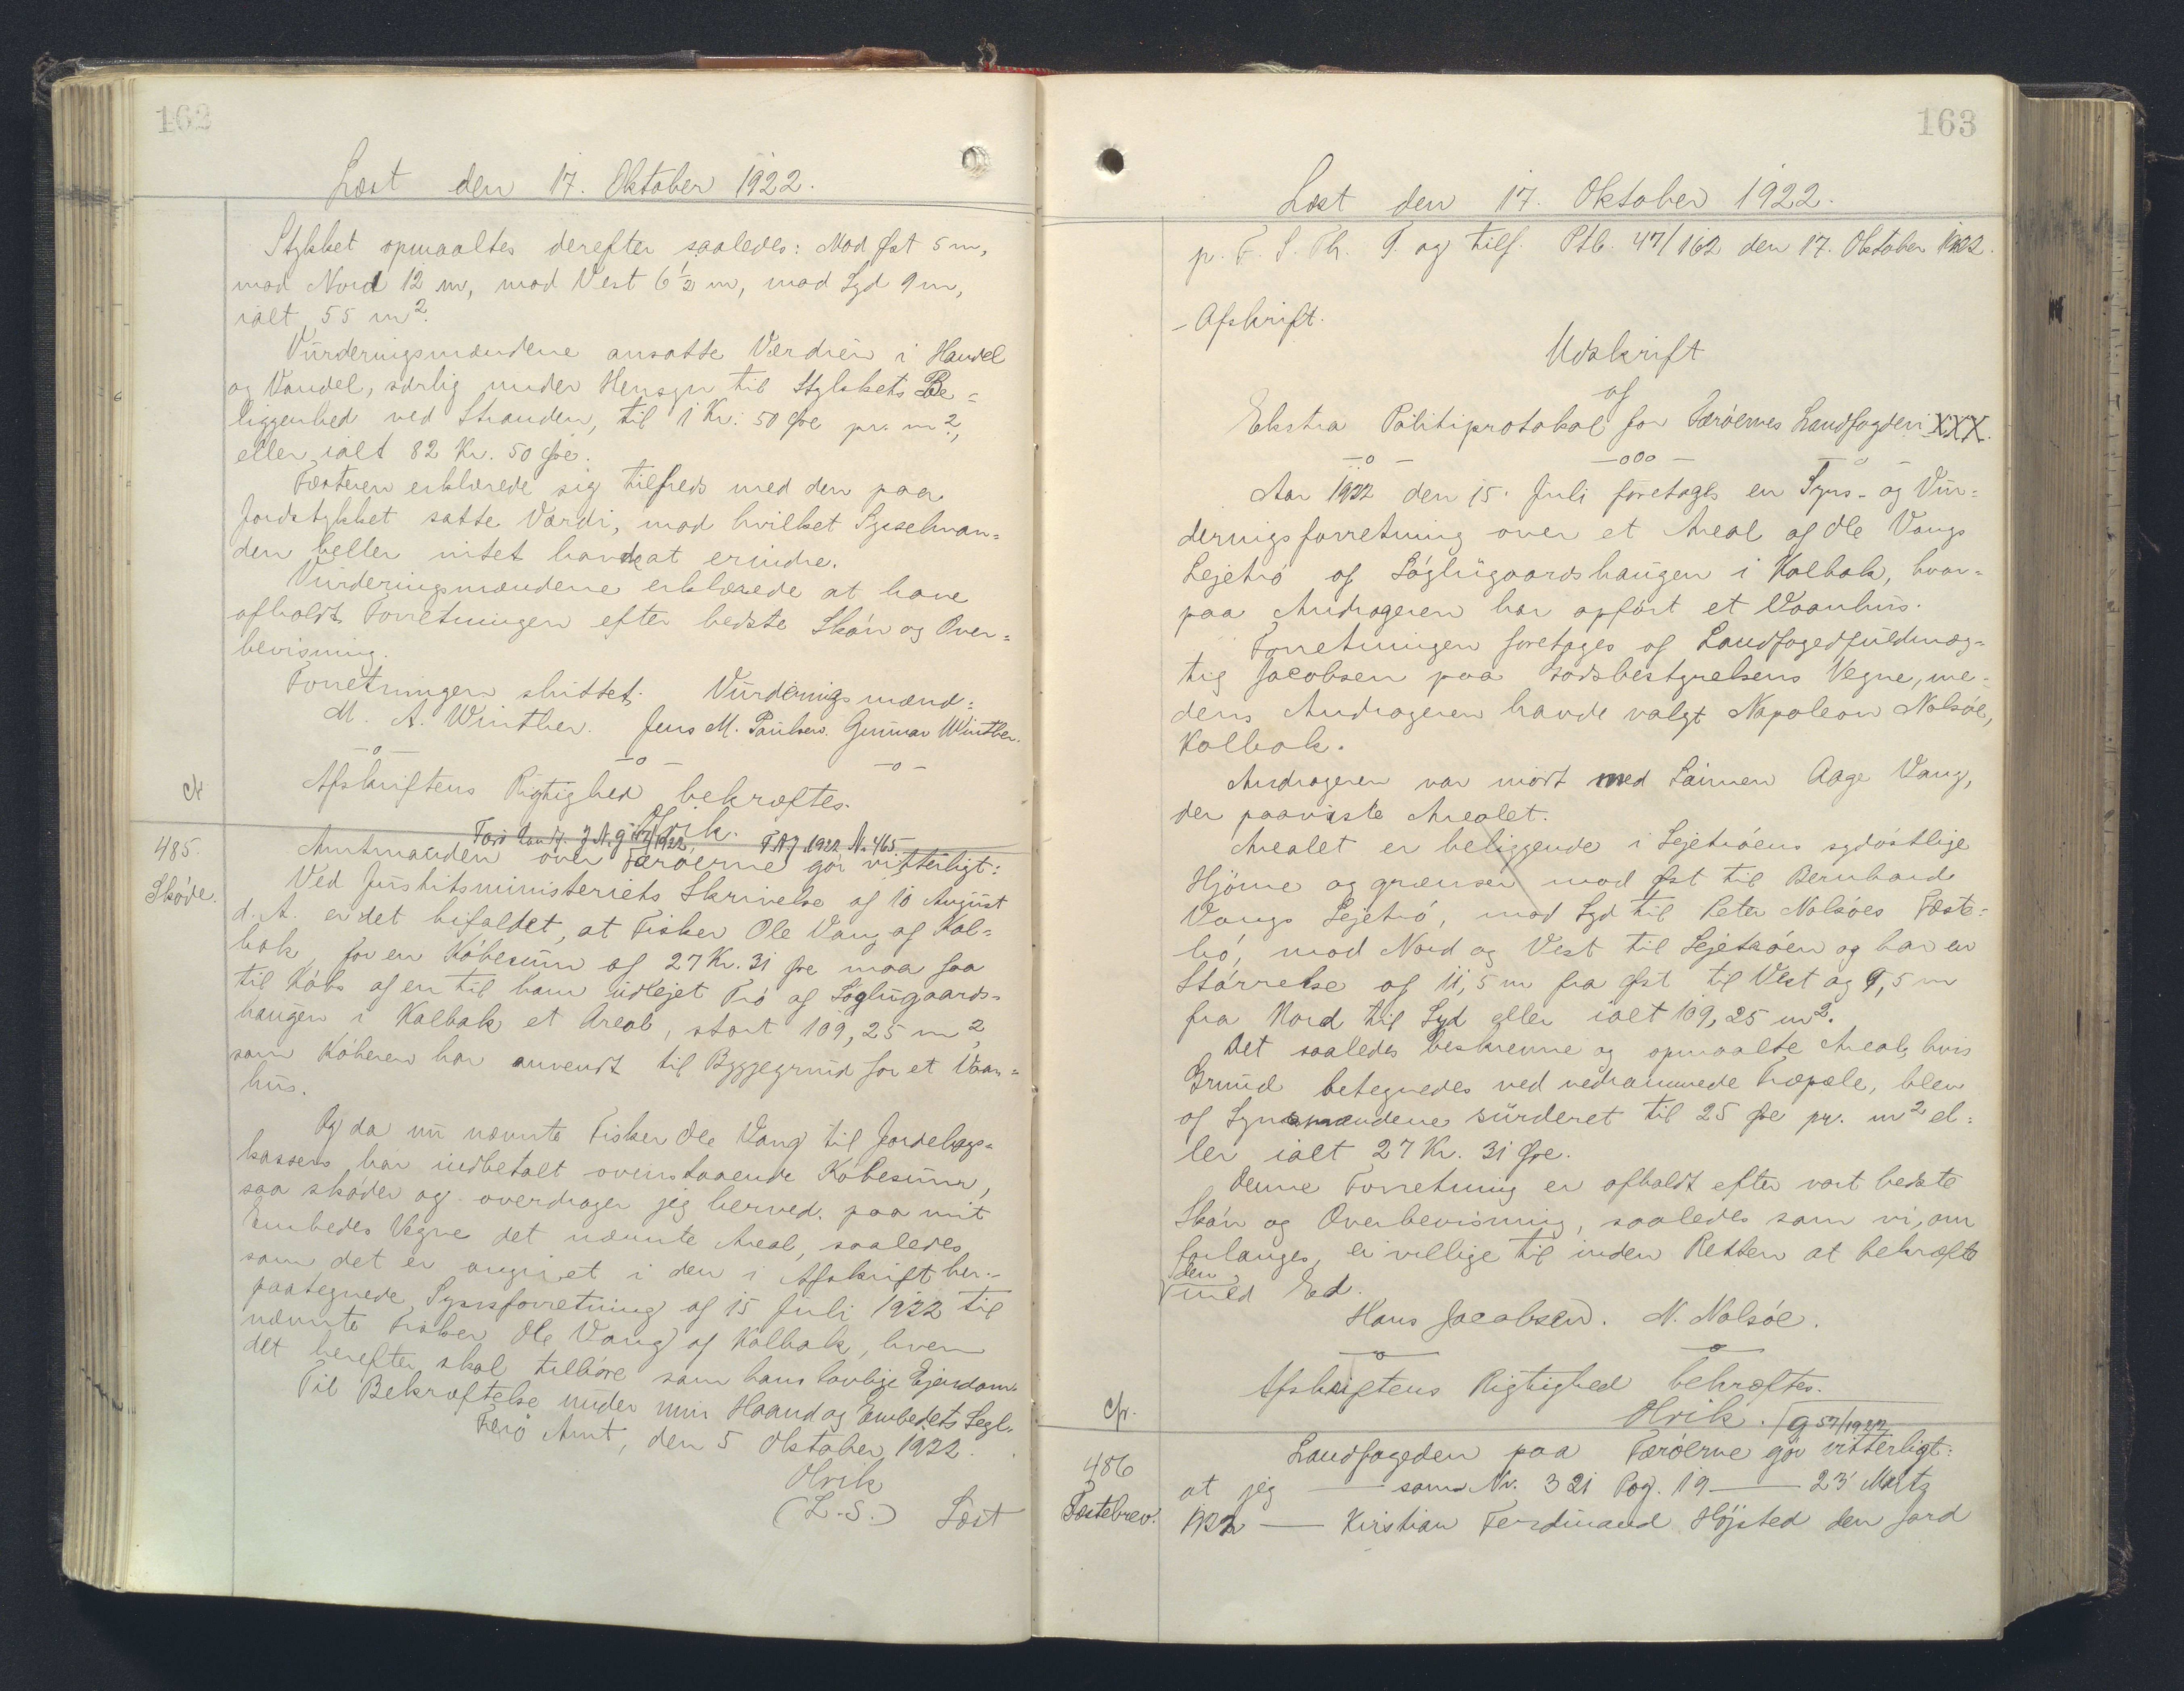 162
Læst den 17. Oktober 1922.
Stykket opmaaltes derefter saaledes: Mod Øst 5 m,
mod Nord 12 m, mod Vest 6 1/2 m, mod Syd 9 m,
ialt 55 m².
Vurderingsmændene ansatte Værdien i Handel
og Vandel, særlig under Hensyn til Stykkets Be=
liggenhed ved Stranden, til 1 Kr. 50 Øre pr. m²,
eller ialt 82 Kr. 50 Øre.
Fæsteren erklærede sig tilfreds med den paa
Jordstykket satte Værdi, mod hvilket Sysselman=
den heller intet havde at erindre.
Vurderingsmændene erklærede at have
afholdt Forretningen efter bedste Skøn og Over=
bevisning.
Forretningen sluttet. Vurderingsmænd:
M. A. Winther. Jens M. Poulsen. Gunnar Winther.
—o— —o— —o—
Afskriftens Rigtighed bekræftes.
Olrik.
485.
Skøde.
F.A.J. 1922 N. 465
Amtmanden over Færøerne gør vitterligt:
Ved Justitsministeriets Skrivelse af 10 August
d. A. er det bifaldet, at Fisker Ole Vang af Kal=
bak for en Købesum af 27 Kr. 31 Øre maa faa
til Købs af en til ham udlejet Trø af Søglugaards=
haugen i Kalbak et Areal, stort 109,25 m²,
som Køberen har anvendt til Byggegrund for et Vaan=
hus.
Og da nu nævnte Fisker Ole Vang til Jordebogs=
kassen har indbetalt ovenstaaende Købesum,
saa skøder og overdrager jeg herved paa mit
Embedes Vegne det nævnte Areal, saaledes
som det er angivet i den i Afskrift her=
paategnede Synsforretning af 15 Juli 1922 til
nævnte Fisker Ole Vang af Kalbak, hvem
det herefter skal tilhøre som hans lovlige Ejendom.
Til Bekræftelse under min Haand og Embedets Segl.
Færø Amt, den 5 Oktober 1922.
Olrik
(L.S.) Læst
163
Læst den 17. Oktober 1922.
p. F. S. Th. T. og tilf. Ptb. 47/162 den 17. Oktober 1922.
Afskrift.
Udskrift
af
Ekstra Politiprotokol for Færøernes Landfogderi XXX.
—o— —ooo— —o—
Aar 1922 den 15. Juli foretages en Syns- og Vur=
deringsforretning over et Areal af Ole Vangs
Lejetrø af Søglugaardshaugen i Kalbak, hvor=
paa Andrageren har opført et Vaanhus.
Forretningen foretages af Landfogedfuldmæg=
tig Jacobsen paa Godsbestyrelsens Vegne, me=
dens Andrageren havde valgt Napoleon Nolsøe,
Kalbak.
Andrageren var mødt med Sønnen Aage Vang,
der paaviste Arealet.
Arealet er beliggende i Lejetrøens sydøstlige
Hjørne og grænser mod Øst til Bernhard
Vangs Lejetrø, mod Syd til Peter Nolsøes Fæste=
trø, mod Nord og Vest til Lejetrøen og har en
Størrelse af 11,5 m fra Øst til Vest og 9,5 m
fra Nord til Syd eller ialt 109,25 m².
Det saaledes beskrevne og opmaalte Areal, hvis
Grund betegnedes ved nedrammede Træpæle, blev
af Synsmændene vurderet til 25 Øre pr. m² el=
ler ialt 27 Kr. 31 Øre.
Denne Forretning er afholdt efter vort bedste
Skøn og Overbevisning, saaledes som vi, om
forlanges, er villige til inden Retten at bekræfte
den
med Ed.
Hans Jacobsen. N. Nolsøe.
—o— —o—
Afskriftens Rigtighed bekræftes.
Olrik. g 57/1922
cfr.
486
Fæstebrev.
Landfogeden paa Færøerne gør vitterligt:
at jeg — som Nr. 321 Pag. 19 — 23' Marts
1922 — Kristian Ferdinand Højsted den Jord